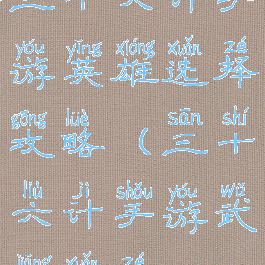 yóu yīng xióng xuǎn zé
游英雄选择
gōng lüè sān shí
攻略（三十
liù jì shǒu yóu wǔ
六计手游武